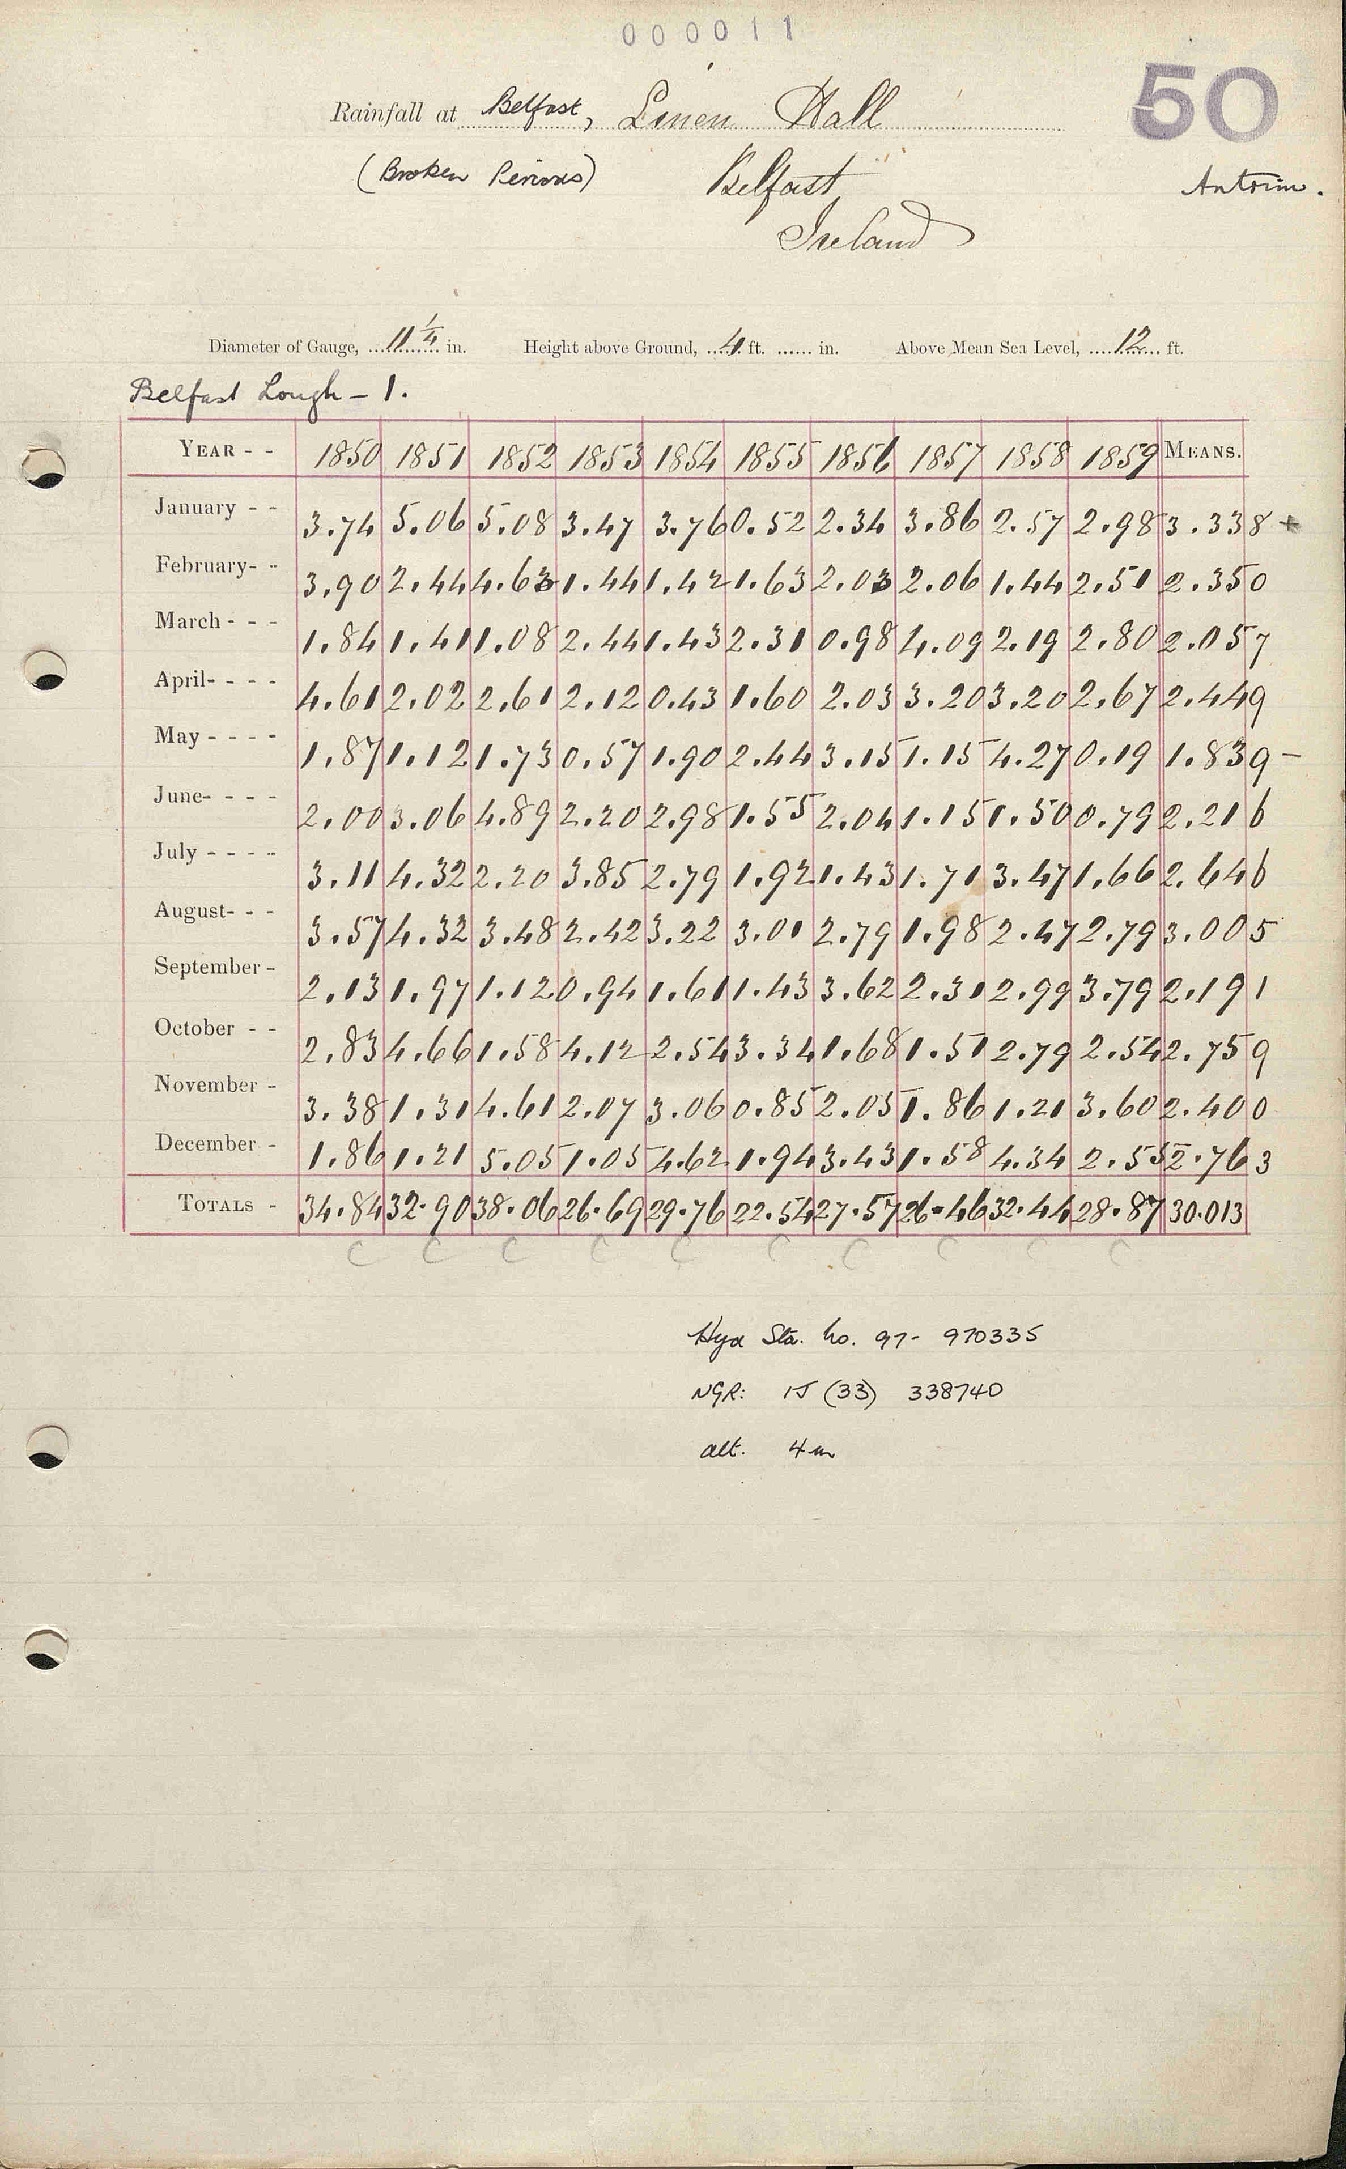 000011
50
Rainfall at Belfast, Linen Hall
(Broken Periods) Belfast Antrim.
Ireland
Diameter of Gauge, 11 1/4 in. Height above Ground, 4 ft. ...... in. Above Mean Sea Level, 12 ft.
Belfast Lough - 1.
YEAR - - 1850 1851 1852 1853 1854 1855 1856 1857 1858 1859 MEANS.
January - - 3.74 5.06 5.08 3.47 3.76 0.52 2.34 3.86 2.57 2.98 3.338 +
February - - 3.90 2.44 4.63 1.44 1.42 1.63 2.03 2.06 1.44 2.51 2.350
March - - - 1.84 1.41 1.08 2.44 1.43 2.31 0.98 4.09 2.19 2.80 2.057
April - - - - 4.61 2.02 2.61 2.12 0.43 1.60 2.03 3.20 3.20 2.67 2.449
May - - - - 1.87 1.12 1.73 0.57 1.90 2.44 3.15 1.15 4.27 0.19 1.839 -
June - - - - 2.00 3.06 4.89 2.20 2.98 1.55 2.04 1.15 1.50 0.79 2.216
July - - - - 3.11 4.32 2.20 3.85 2.79 1.92 1.43 1.71 3.47 1.66 2.646
August - - - 3.57 4.32 3.48 2.42 3.22 3.01 2.79 1.98 2.47 2.79 3.005
September - 2.13 1.97 1.12 0.94 1.61 1.43 3.62 2.31 2.99 3.79 2.191
October - - 2.83 4.66 1.58 4.12 2.54 3.34 1.68 1.51 2.79 2.54 2.759
November - 3.38 1.31 4.61 2.07 3.06 0.85 2.05 1.86 1.21 3.60 2.400
December - 1.86 1.21 5.05 1.05 4.62 1.94 3.43 1.58 4.34 2.55 2.763
TOTALS - 34.84 32.90 38.06 26.69 29.76 22.54 27.57 26.46 32.44 28.87 30.013
C C C C C C C C C C
Hyd Sta. No. 97- 970335
NGR: IJ (33) 338740
alt. 4m